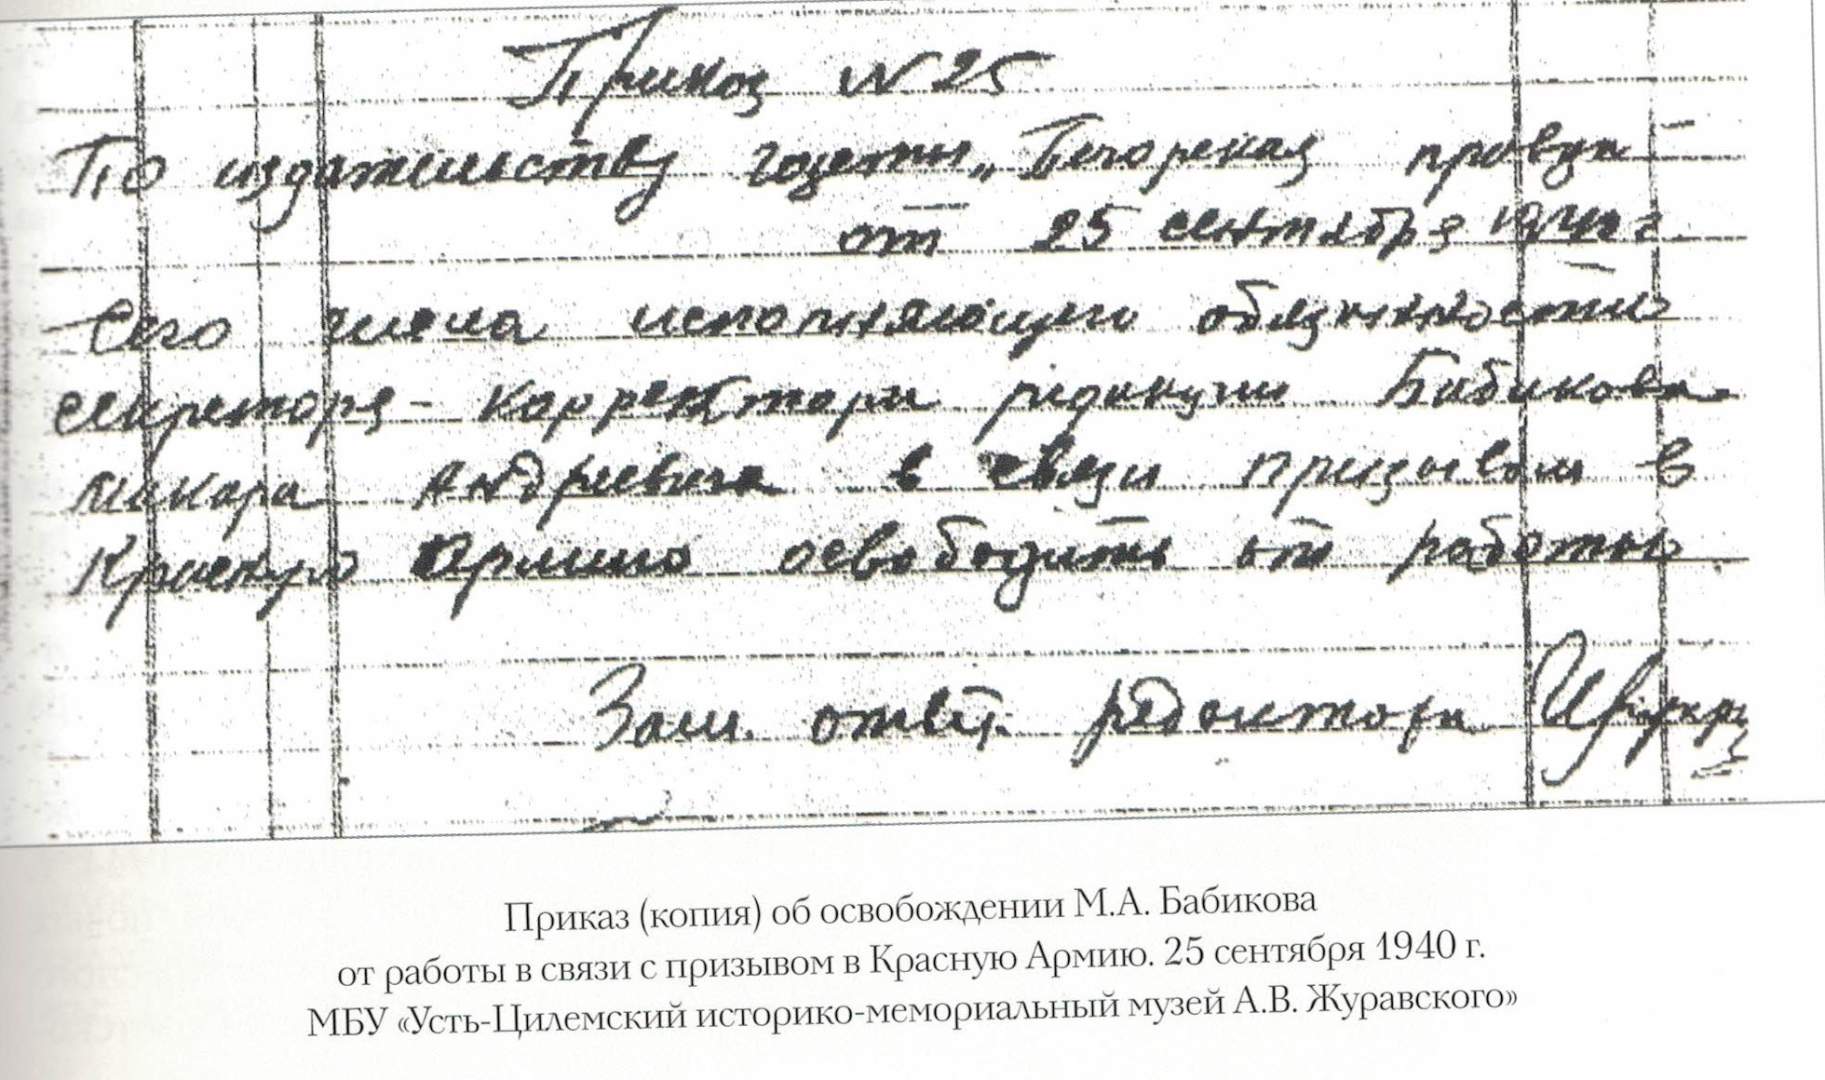 Приказ N 25
По издательству газеты „Печорская правда
от 25 сентября 1940 г.
Сего числа исполняющего обязанности
секретаря - корректора редакции Бабикова
Макара Андреевича в связи призывом в
Красную Армию освободить от работы
Зам. ответ. редактора
Приказ (копия) об освобождении М.А. Бабикова
от работы в связи с призывом в Красную Армию. 25 сентября 1940 г.
МБУ «Усть-Цилемский историко-мемориальный музей А.В. Журавского»